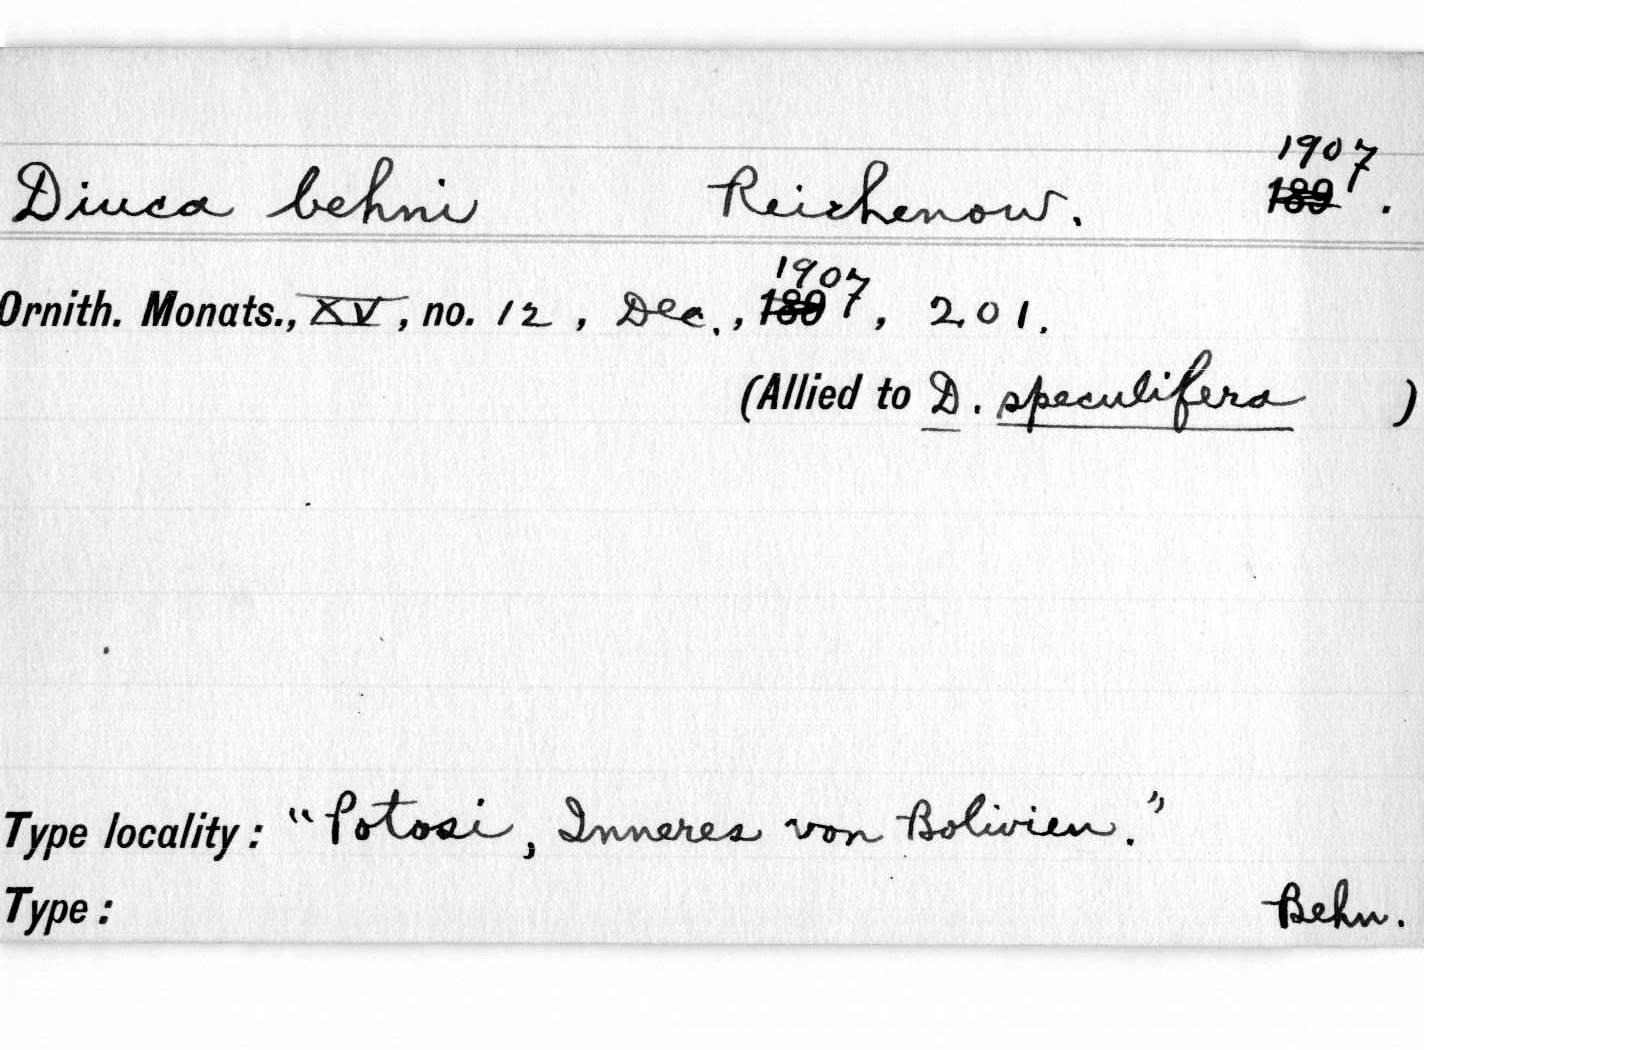 Diuca behni Reichenow. 1907.
Ornith. Monats., XV, no. 12, Dec., 1907, 201.
(Allied to D. speculifera)
Type locality: "Potosi, Inneres von Bolivien."
Type: Behn.